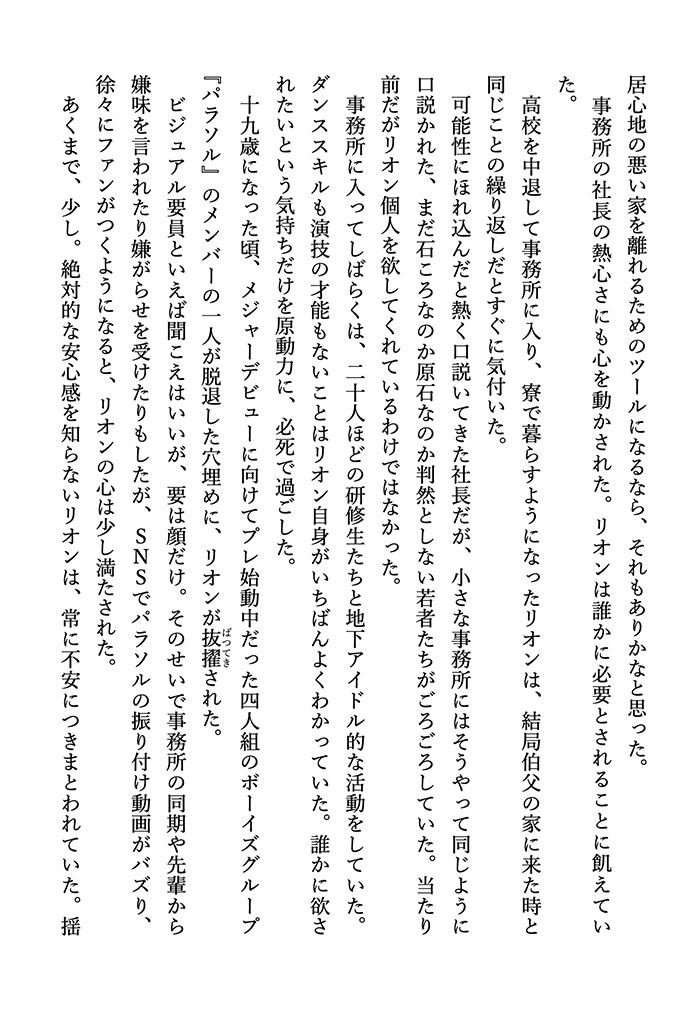 居心地の悪い家を離れるためのツールになるなら、それもありかなと思った。
　事務所の社長の熱心さにも心を動かされた。リオンは誰かに必要とされることに飢えてい
た。
　高校を中退して事務所に入り、寮で暮らすようになったリオンは、結局伯父の家に来た時と
同じことの繰り返しだとすぐに気付いた。
　可能性にほれ込んだと熱く口説いてきた社長だが、小さな事務所にはそうやって同じように
口説かれた、まだ石ころなのか原石なのか判然としない若者たちがごろごろしていた。当たり
前だがリオン個人を欲してくれているわけではなかった。
　事務所に入ってしばらくは、二十人ほどの研修生たちと地下アイドル的な活動をしていた。
ダンススキルも演技の才能もないことはリオン自身がいちばんよくわかっていた。誰かに欲さ
れたいという気持ちだけを原動力に、必死で過ごした。
　十九歳になった頃、メジャーデビューに向けてプレ始動中だった四人組のボーイズグループ
『パラソル』のメンバーの一人が脱退した穴埋めに、リオンが抜擢ばってきされた。
　ビジュアル要員といえば聞こえはいいが、要は顔だけ。そのせいで事務所の同期や先輩から
嫌味を言われたり嫌がらせを受けたりもしたが、ＳＮＳでパラソルの振り付け動画がバズり、
徐々にファンがつくようになると、リオンの心は少し満たされた。
　あくまで、少し。絶対的な安心感を知らないリオンは、常に不安につきまとわれていた。揺